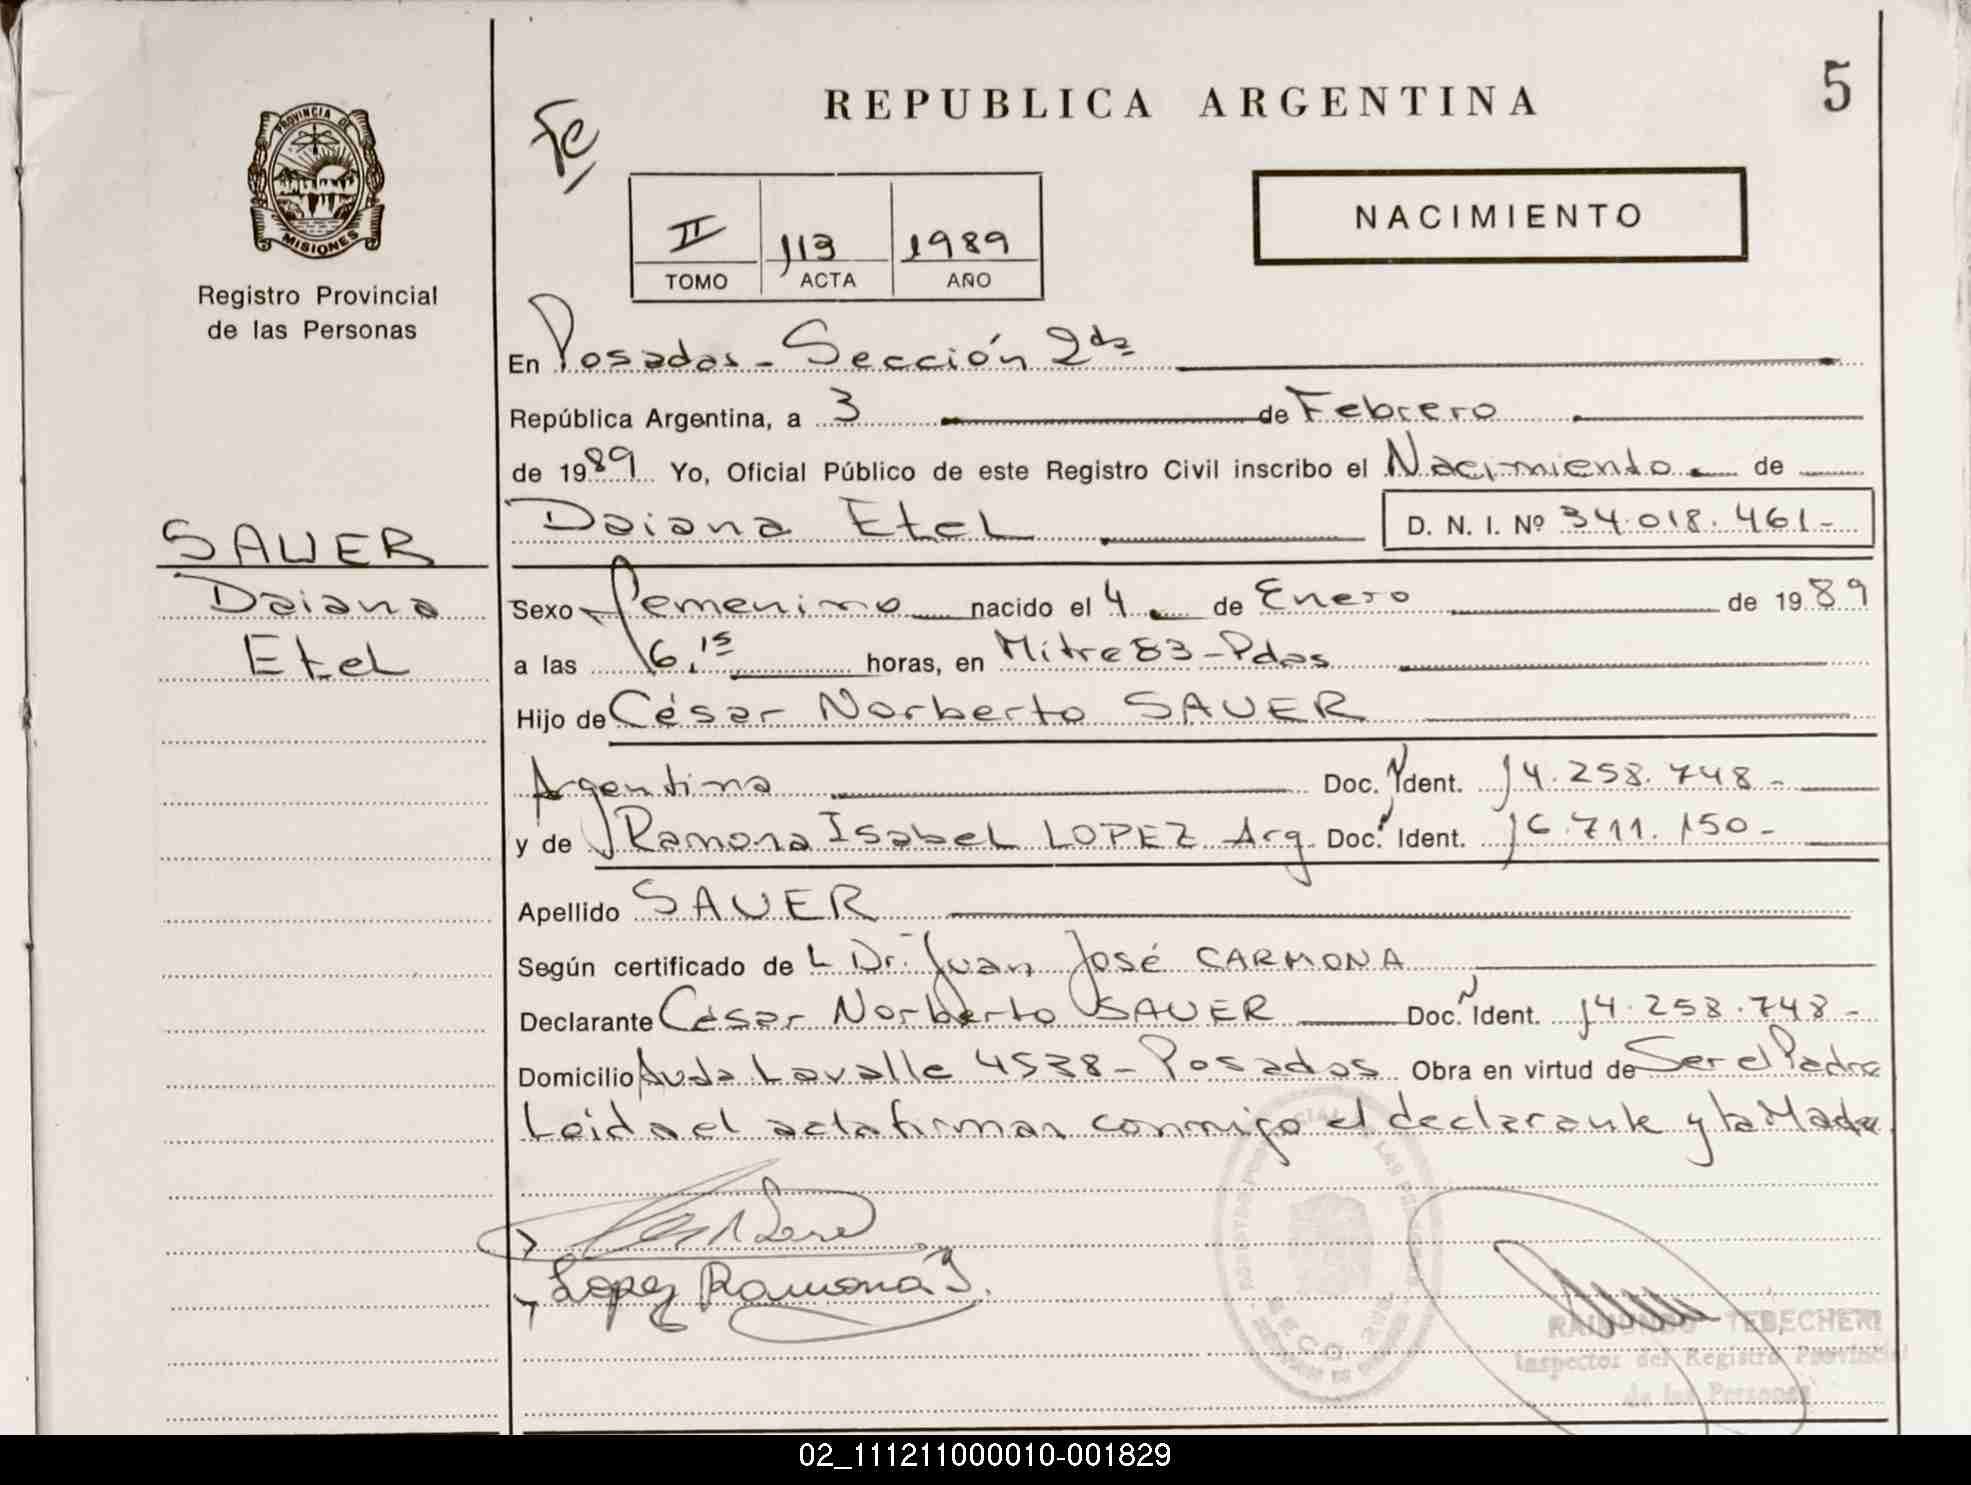 REPUBLICA ARGENTINA
5
PROVINCIA DE
MISIONES
Registro Provincial
de las Personas
NACIMIENTO
II 113 1989
TOMO ACTA AÑO
En Posadas - Sección 2da
República Argentina, a 3 de Febrero
de 1989 Yo, Oficial Público de este Registro Civil inscribo el Nacimiento de
Daiana Etel D. N. I. Nº 34.018.461-
SAUER
Daiana
Etel
Sexo femenino nacido el 4 de Enero de 1989
a las 16.15 horas, en Mitre 83 - Pdas
Hijo de César Norberto SAUER
Argentina Doc. N Ident. 14.258.748-
y de Ramona Isabel LOPEZ Arg. Doc. N Ident. 16.711.150-
Apellido SAUER
Según certificado de L Dr. Juan José CARMONA
Declarante César Norberto SAUER Doc. N Ident. 14.258.748-
Domicilio Avda Lavalle 4538 - Posadas Obra en virtud de Ser el Padre
Leida el acta firman conmigo el declarante y la Madre
Lopez Ramona I.
RAIMUNDO TEBECHERI
Inspector del Registro Provincial
de las Personas
02_111211000010-001829